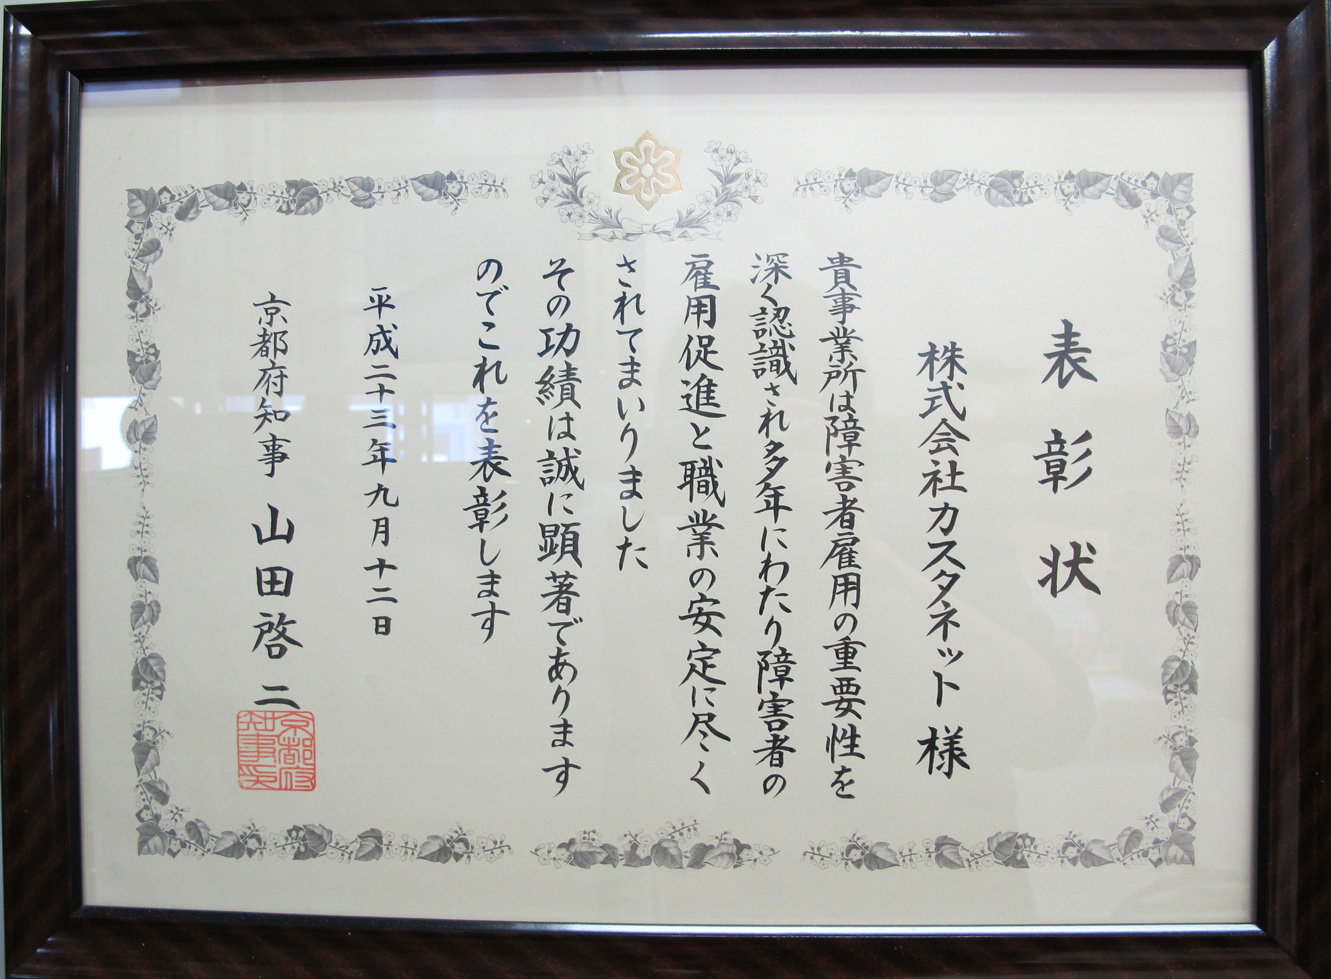 表彰状
株式会社カスタネット 様
貴事業所は障害者雇用の重要性を
深く認識され多年にわたり障害者の
雇用促進と職業の安定に尽く
されてまいりました
その功績は誠に顕著であります
のでこれを表彰します
平成二十三年九月十二日
京都府知事 山田啓二
京都府知事印